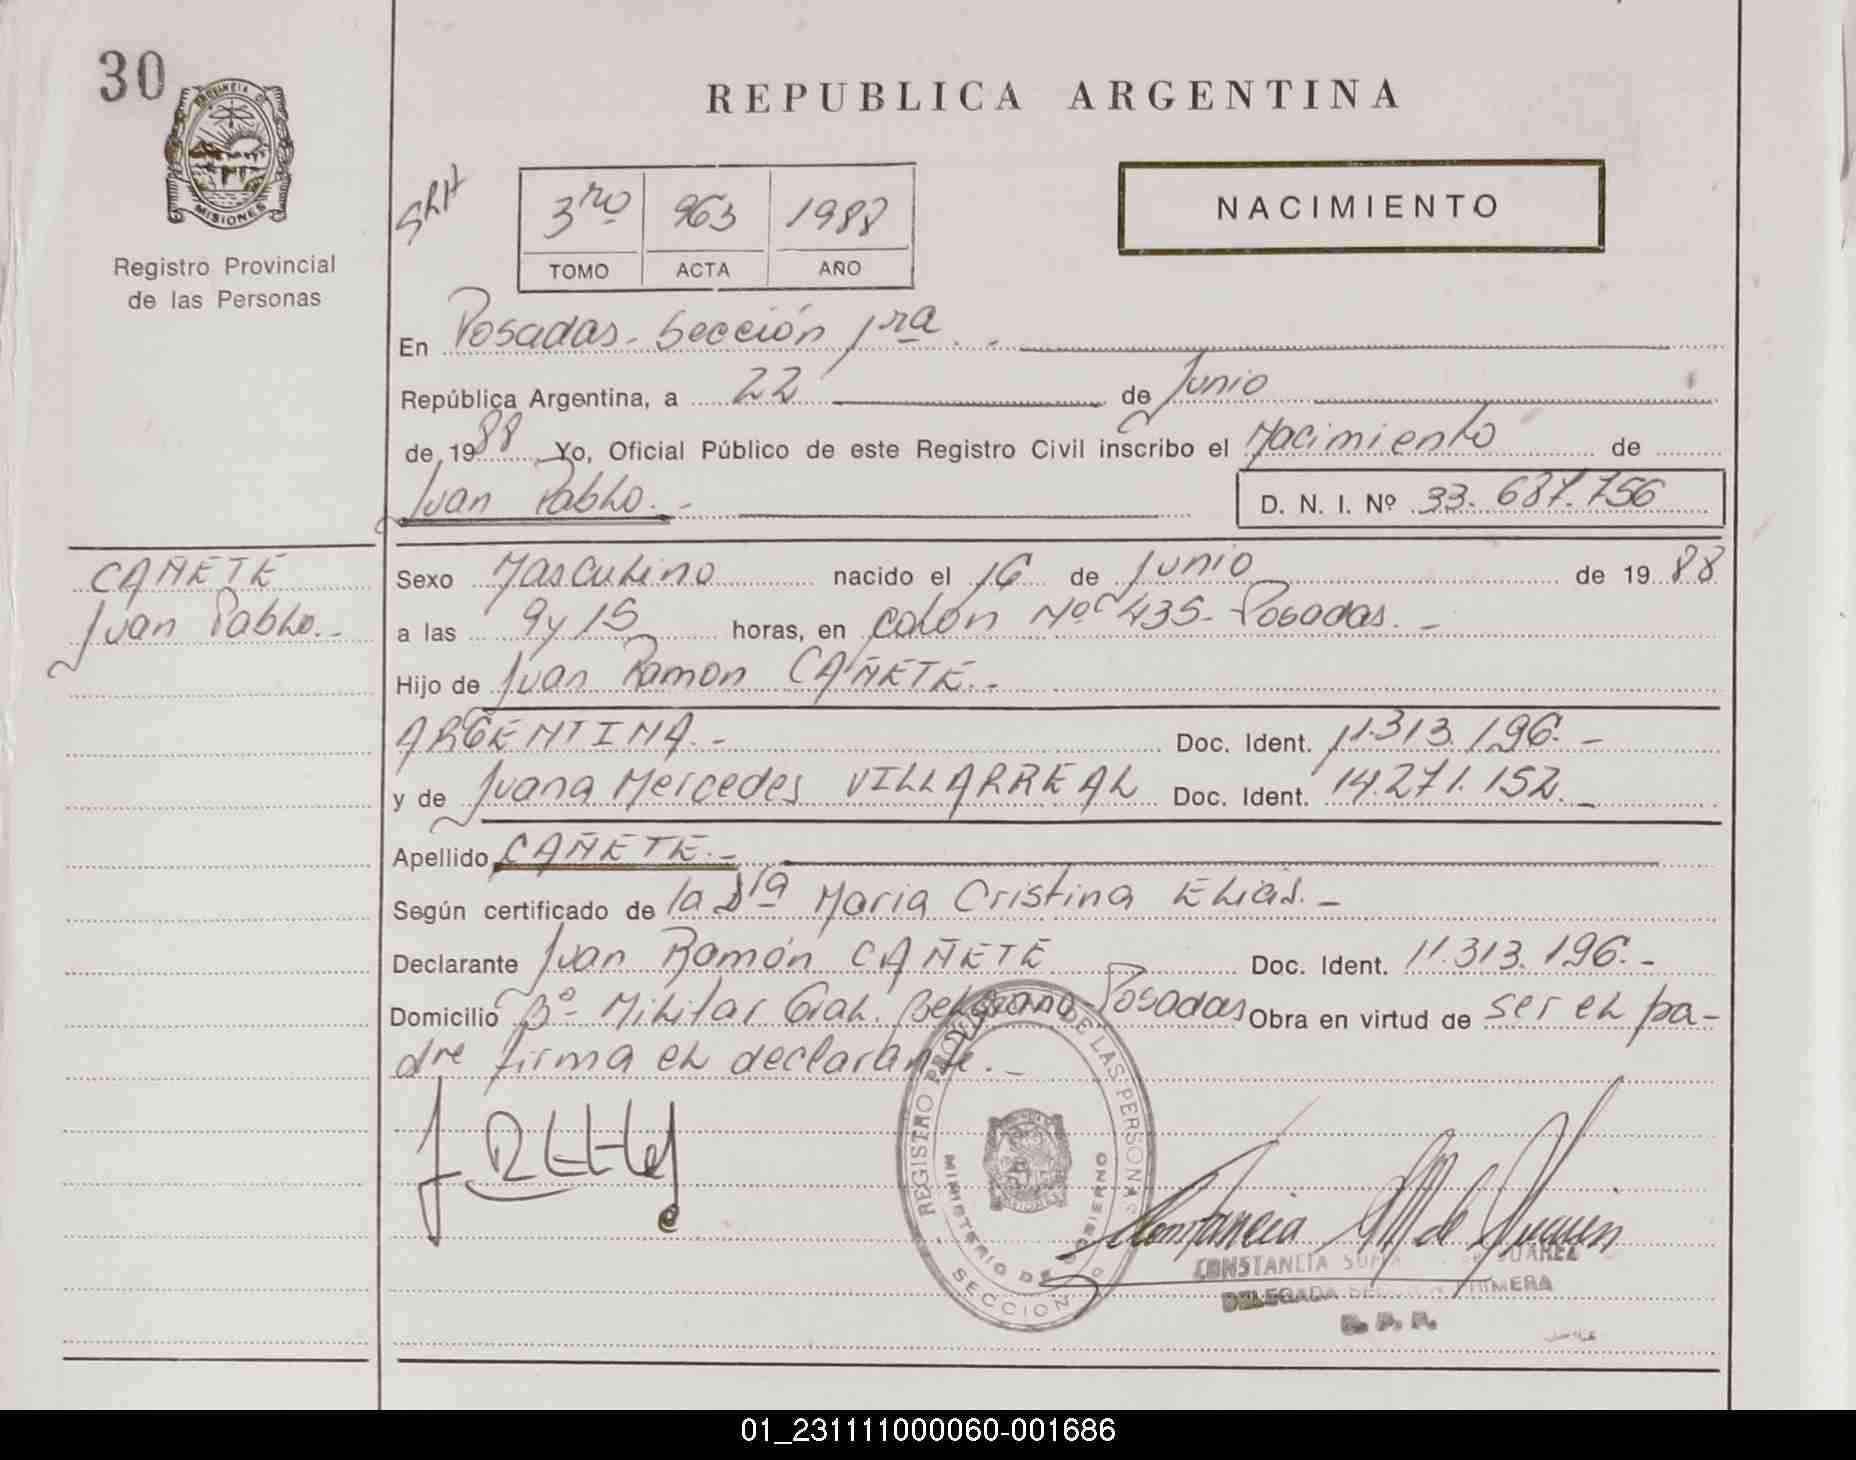 30
PROVINCIA DE
MISIONES
Registro Provincial
de las Personas
REPUBLICA ARGENTINA
3ro 963 1988
TOMO ACTA AÑO
NACIMIENTO
En Posadas - Sección 1ra. -
República Argentina, a 22 de Junio
de 1988 Yo, Oficial Público de este Registro Civil inscribo el Nacimiento de
Juan Pablo. -
D. N. I. Nº 33.687.756
CAÑETE
Juan Pablo. -
Sexo Masculino nacido el 16 de Junio de 1988
a las 9 y 15 horas, en Colón Nº 435 - Posadas. -
Hijo de Juan Ramon CAÑETE. -
ARGENTINA. - Doc. Ident. 11.313.196. -
y de Juana Mercedes VILLARREAL Doc. Ident. 14.271.152. -
Apellido CAÑETE. -
Según certificado de la Dra Maria Cristina Elias. -
Declarante Juan Ramón CAÑETE Doc. Ident. 11.313.196. -
Domicilio Bº Militar Gral. Belgrano - Posadas Obra en virtud de ser el pa-
dre firma el declarante. -
REGISTRO PROVINCIAL DE LAS PERSONAS
MINISTERIO DE GOBIERNO
SECCION
Constancia
CONSTANCIA SUAREZ
DELEGADA PRIMERA
R. P. P.
01_231111000060-001686